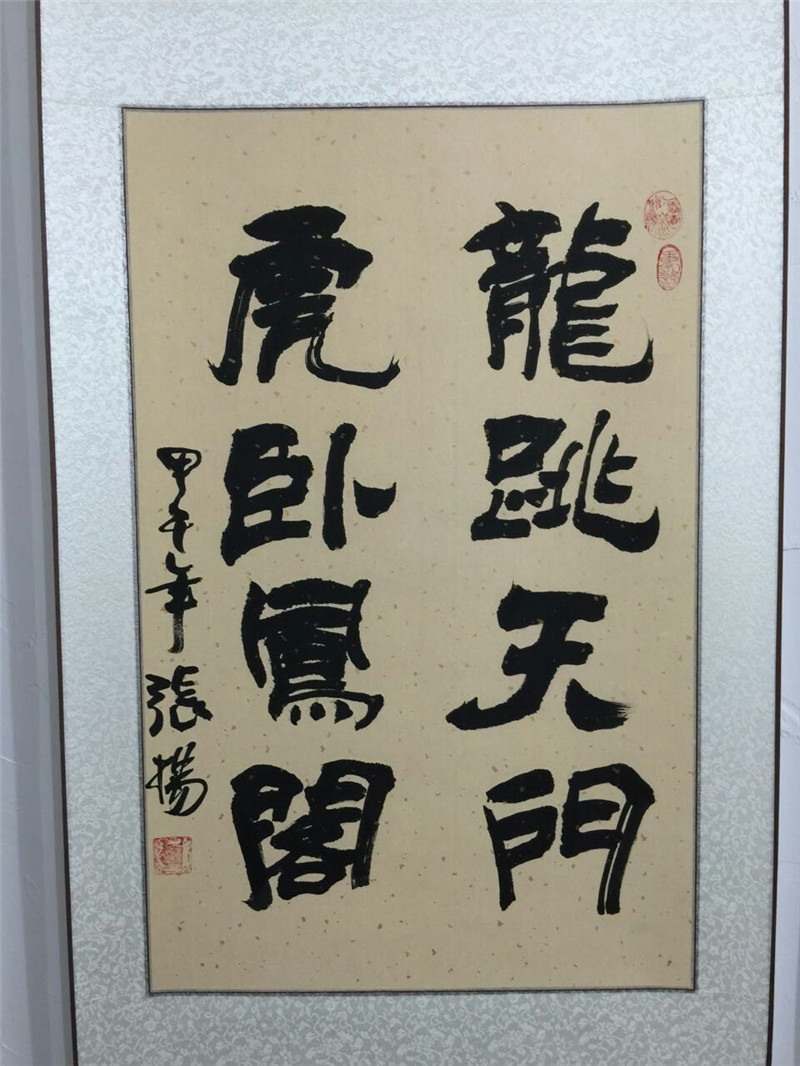 龍跳天門
虎卧鳳閣
甲午年張揚